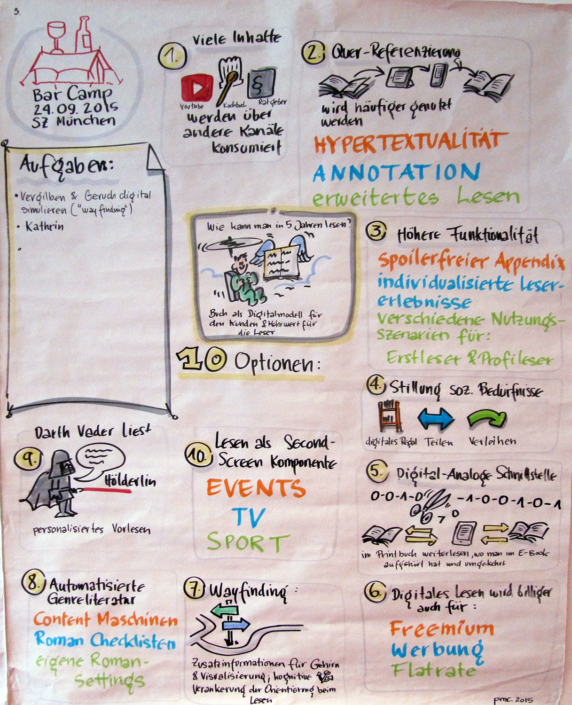 5.
Bar Camp
29.09.2015
SZ München
Aufgaben:
• Vergilben & Geruch digital
simulieren ("wayfinding")
• Kathrin
•
1. Viele Inhalte
Youtube
Kochbuch
§
Ratgeber
werden über
andere Kanäle
konsumiert
2. Quer-Referenzierung
wird häufiger genutzt
werden
HYPERTEXTUALITÄT
ANNOTATION
erweitertes Lesen
Wie kann man in 5 Jahren lesen?
Buch als Digitalmodell für
den Kunden & Mehrwert für
die Leser
10 Optionen:
3. Höhere Funktionalität
Spoilerfreier Appendix
individualisierte Leser-
erlebnisse
verschiedene Nutzungs-
szenarien für:
Erstleser & Profileser
4. Stillung soz. Bedürfnisse
digitales Regal
Teilen
Verleihen
5. Digital-Analoge Schnittstelle
0-0-1-0
-1-0-0-1-0-1
im Printbuch weiterlesen, wo man im E-Book
aufgehört hat und umgekehrt
6. Digitales Lesen wird billiger
auch für:
Freemium
Werbung
Flatrate
7. Wayfinding:
Zusatzinformationen für Gehirn
& Visualisierung; kognitive
Verankerung der Orientierung beim
Lesen
8. Automatisierte
Genreliteratur
Content Maschinen
Roman Checklisten
eigene Roman-
Settings
9. Darth Vader liest
Hölderlin
personalisiertes Vorlesen
10. Lesen als Second-
Screen Komponente
EVENTS
TV
SPORT
pmc. 2015